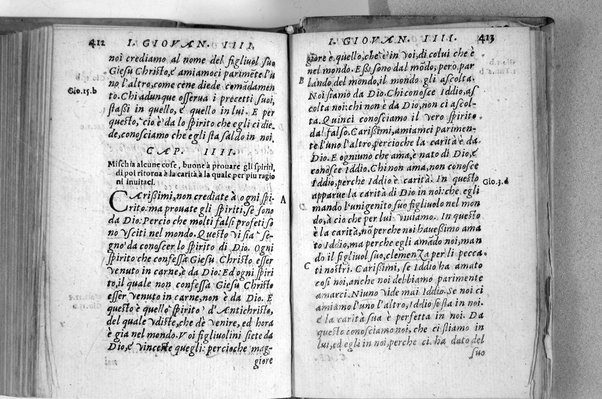 412 I. GIOVAN. IIII.
noi crediamo al nome del figliuol suo
Giesu Christo, & amiamoci parimẽte l'u
no l'altro, come cene diede comãdamẽ
Gio.15.b
to. Chi adunque osserua i precetti suoi,
stassi in quello, e quello in lui. E per
questo, cio è da lo spirito che egli ci die-
de, conosciamo che egli sta saldo in noi.
CAP. IIII.
Mischia alcune cose, buone a prouare gli spiriti,
di poi ritorna à la carità à la quale per piu ragio
ni inuitaci.
CArissimi, non crediate à ogni spi-
rito: ma prouate gli spiriti, se sono
A
da Dio: Percio che molti falsi profeti so
no vsciti nel mondo. Questo vi sia se-
gno da conoscer lo spirito di Dio. Ogni
spirito che confessa Giesu Christo esser
venuto in carne, è da Dio: Ed ogni spiri
to, il quale non confessa Giesu Christo
esser venuto in carne, non è da Dio. E
questo è quello spirito d'Antichristo,
del quale vdiste, che dè venire, ed hora
è gia nel mondo. Voi figliuolini siete da
Dio, & vinceste quegli: percioche mag-
giore
I. GIOVAN. IIII. 413
giore è quello, che è in voi, di colui che è
B
nel mondo. Essi sono dal mõdo, però par-
lando del mondo, il mondo gli ascolta.
Noi siamo da Dio. Chi conosce Iddio, as
colta noi: chi non è da Dio, non ci ascol
ta. Quinci conosciamo il vero spirito
da'l falso. Carissimi, amiamci parimen-
te l'uno l'altro, percioche la carità è da
Dio. E ognuno che ama, è nato di Dio, e
conosce Iddio. Chi non ama, non conosce
Iddio, perche Iddio è carità. In questo
Gio.3.d
apparue la carità di Dio in noi: che egli
mando l'unigenito suo figliuolo nel mon
do, à cio che per lui viuiamo. In questo
è la carità, nõ perche noi hauessimo ama
to Iddio, ma perche egli amàdo noi, man
dò il figliuol suo, clemenza per li pecca
C
ti nostri. Carissimi, se Iddio ha amato
cosi noi, anche noi debbiamo parimente
amarci. Niuno vide mai Iddio. Se noi ci
amiamo l'uno l'altro, Iddio sta in noi,
e la carità sua è perfetta in noi. Da
questo conosciamo noi, che ci stiamo in
lui, ed egli in noi, perche ci ha dato del
suo